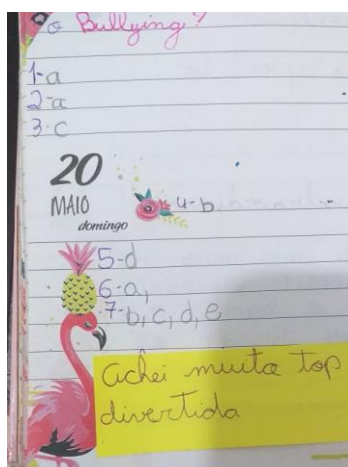 o Bullying?
1-a
2-a
3-c
20
MAIO
domingo
4-b
5-d
6-a,
7-b, c, d, e
achei muita top
divertida